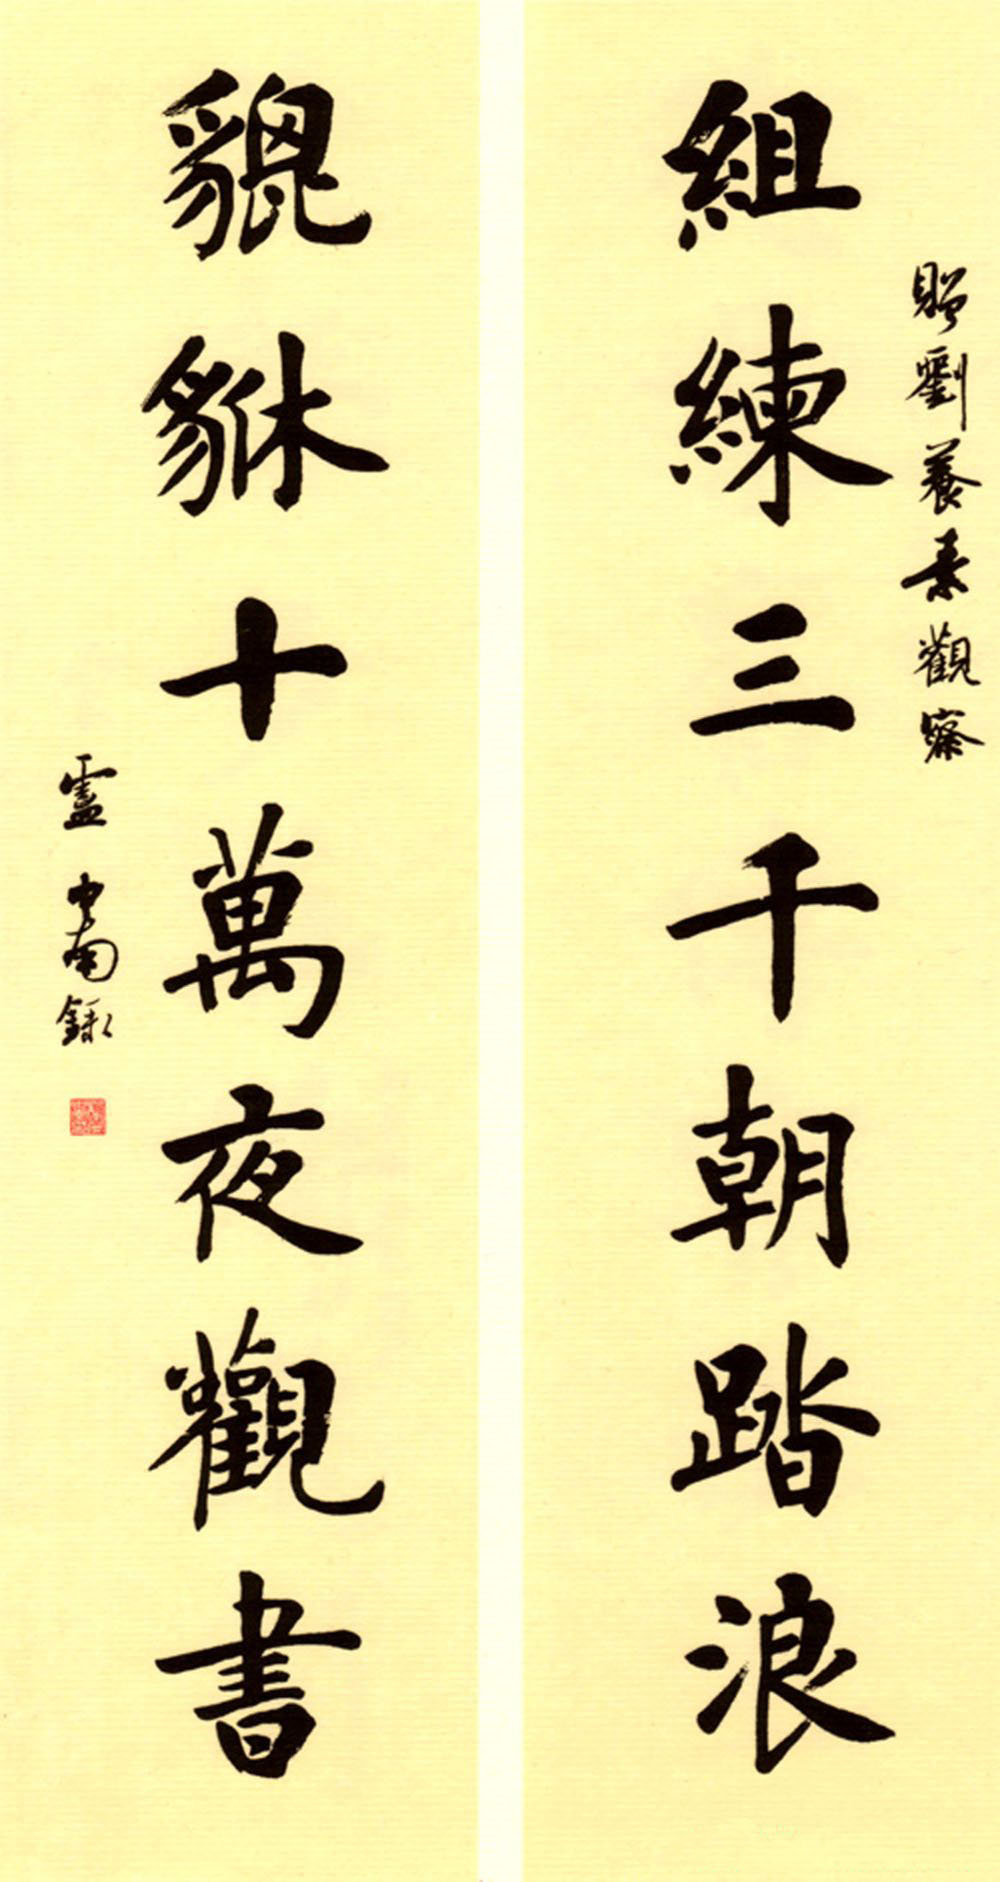 贈劉養素觀察
組練三千朝踏浪
貔貅十萬夜觀書